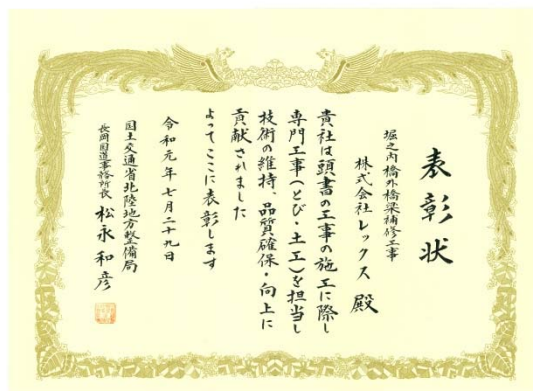 表彰状
堀之内橋外橋梁補修工事
株式会社レックス 殿
貴社は頭書の工事の施工に際し
専門工事(とび・土工)を担当し
技術の維持、品質確保・向上に
貢献されました
よってここに表彰します
令和元年七月二十九日
国土交通省北陸地方整備局
長岡国道事務所長 松永和彦